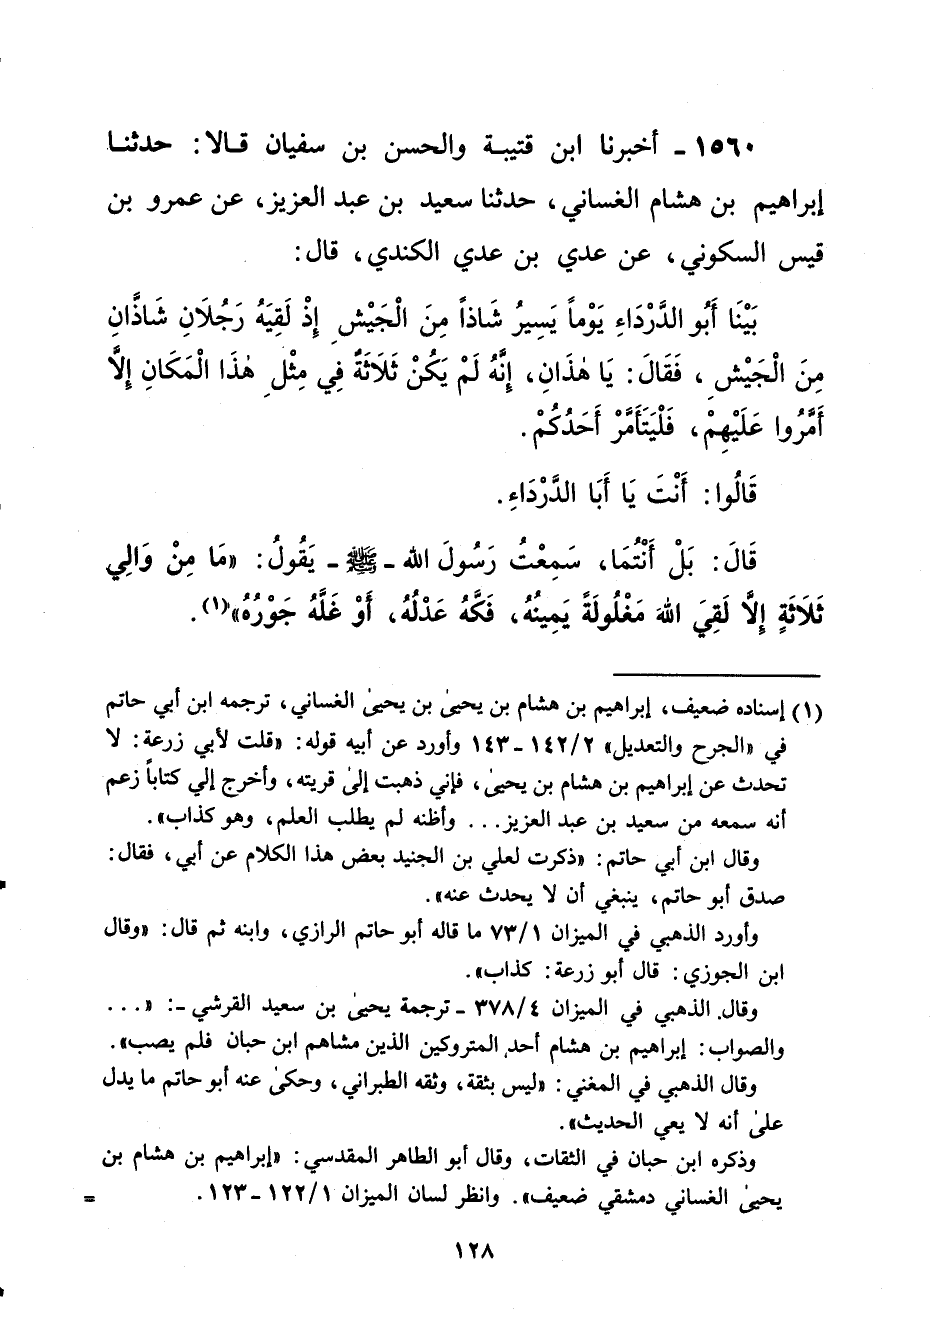 ١٥٦٠ ـ أخبرنا ابن قتيبة والحسن بن سفيان قالا: حدثنا
إبراهيم بن هشام الغساني، حدثنا سعيد بن عبد العزيز، عن عمرو بن
قيس السكوني، عن عدي بن عدي الكندي، قال:
بَيْنَا أَبُو الدَّرْدَاءِ يَوْماً يَسِيرُ شَاذاً مِنَ الْجَيْشِ إِذْ لَقِيَهُ رَجُلَانِ شَاذَّانِ
مِنَ الْجَيْشِ، فَقَالَ: يَا هٰذَانِ، إِنَّهُ لَمْ يَكُنْ ثَلَاثَةٌ فِي مِثْلِ هٰذَا الْمَكَانِ إِلَّا
أَمَّرُوا عَلَيْهِمْ، فَلْيَتَأَمَّرْ أَحَدُكُمْ.
قَالُوا: أَنْتَ يَا أَبَا الدَّرْدَاءِ.
قَالَ: بَلْ أَنْتُمَا، سَمِعْتُ رَسُولَ اللهِ ـ ﷺ ـ يَقُولُ: «مَا مِنْ وَالِي
ثَلَاثَةٍ إِلَّا لَقِيَ اللهَ مَغْلُولَةً يَمِينُهُ، فَكَّهُ عَدْلُهُ، أَوْ غَلَّهُ جَوْرُهُ»(١).
(١) إسناده ضعيف، إبراهيم بن هشام بن يحيىٰ بن يحيىٰ الغساني، ترجمه ابن أبي حاتم
في «الجرح والتعديل» ١٤٢/٢ ـ ١٤٣ وأورد عن أبيه قوله: «قلت لأبي زرعة: لا
تحدث عن إبراهيم بن هشام بن يحيىٰ، فإني ذهبت إلىٰ قريته، وأخرج إلي كتاباً زعم
أنه سمعه من سعيد بن عبد العزيز... وأظنه لم يطلب العلم، وهو كذاب».
وقال ابن أبي حاتم: «ذكرت لعلي بن الجنيد بعض هذا الكلام عن أبي، فقال:
صدق أبو حاتم، ينبغي أن لا يحدث عنه».
وأورد الذهبي في الميزان ٧٣/١ ما قاله أبو حاتم الرازي، وابنه ثم قال: «وقال
ابن الجوزي: قال أبو زرعة: كذاب».
وقال الذهبي في الميزان ٣٧٨/٤ ـ ترجمة يحيىٰ بن سعيد القرشي ـ: «...
والصواب: إبراهيم بن هشام أحد المتروكين الذين مشاهم ابن حبان فلم يصب».
وقال الذهبي في المغني: «ليس بثقة، وثقه الطبراني، وحكىٰ عنه أبو حاتم ما يدل
علىٰ أنه لا يعي الحديث».
وذكره ابن حبان في الثقات، وقال أبو الطاهر المقدسي: «إبراهيم بن هشام بن
يحيىٰ الغساني دمشقي ضعيف». وانظر لسان الميزان ١٢٢/١ ـ ١٢٣. =
١٢٨